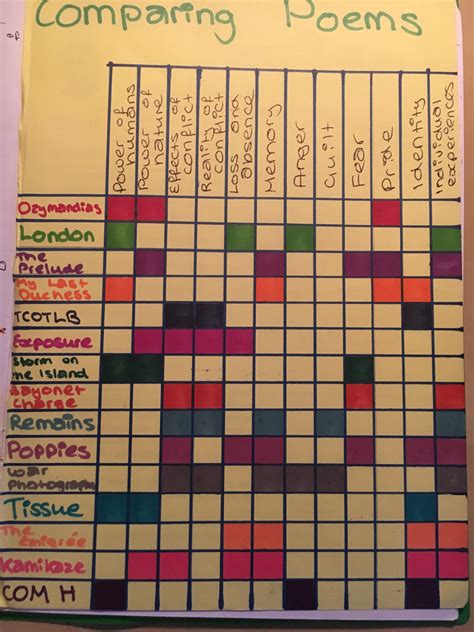 Comparing Poems
Power of
humans
Power of
nature
Effects of
conflict
Reality of
conflict
Loss and
absence
Memory
Anger
Guilt
Fear
Pride
Identity
Individual
experiences
Ozymandias
London
The
Prelude
My Last
Duchess
TCOTLB
Exposure
Storm on
the Island
Bayonet
Charge
Remains
Poppies
War
Photography
Tissue
The
émigrée
Kamikaze
COM H